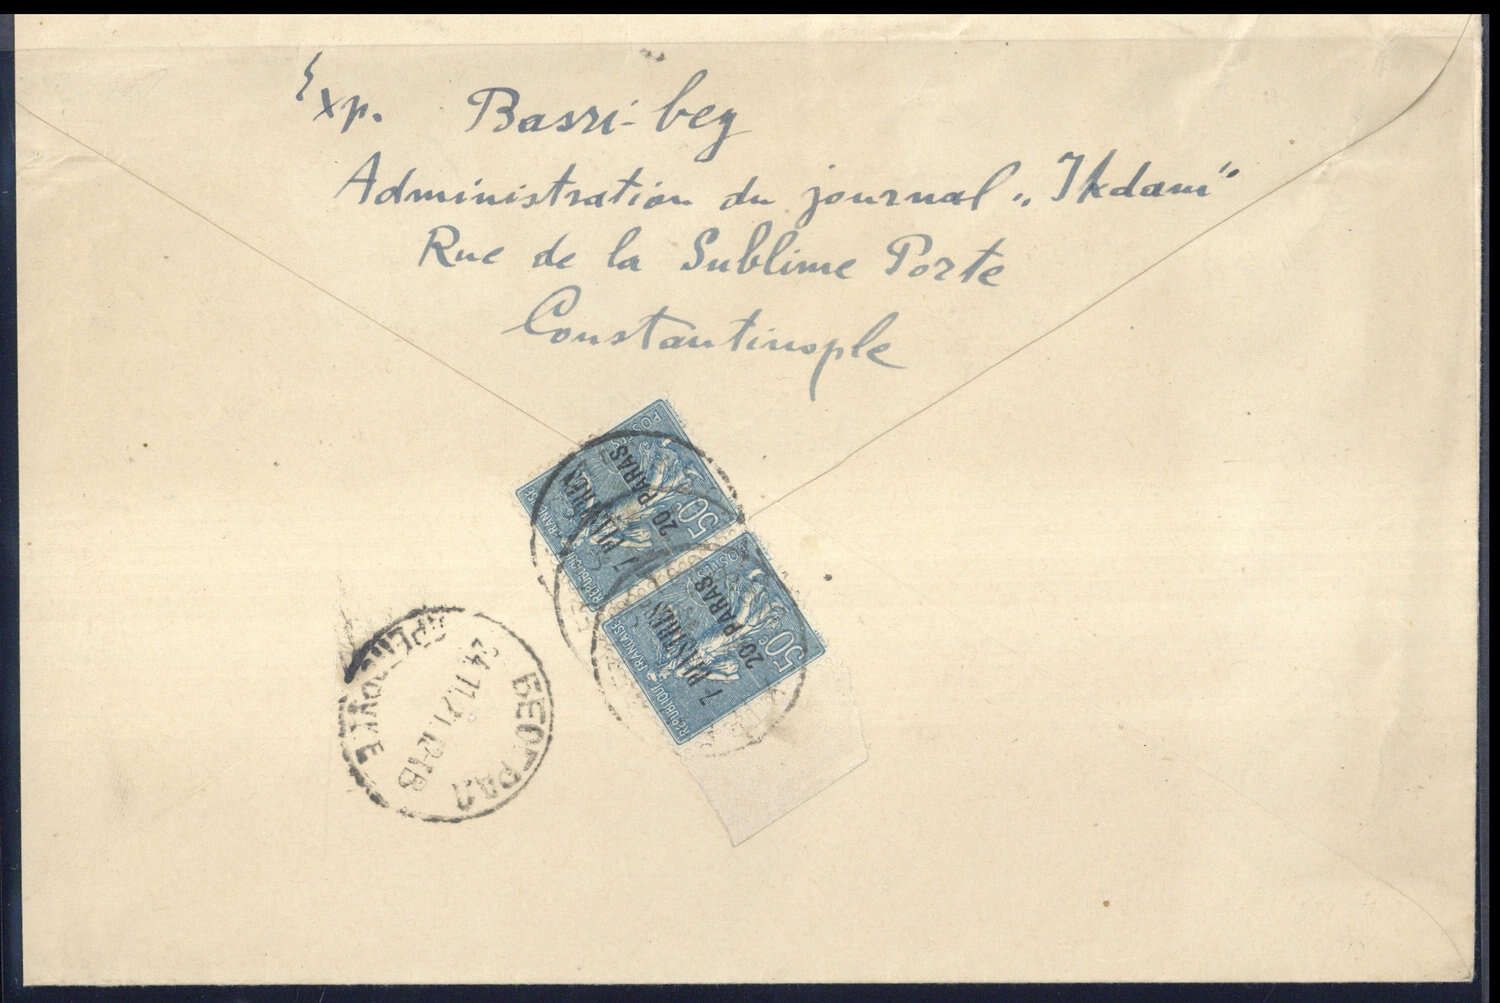 Exp. Basri-bey
Administration du journal „Ikdam"
Rue de la Sublime Porte
Constantinople
POSTES
50c
REPUBLIQUE FRANÇAISE
7 PIASTRES
20 PARAS
POSTES
50c
REPUBLIQUE FRANÇAISE
7 PIASTRES
20 PARAS
БЕОГРАД
24.11.21.12-18